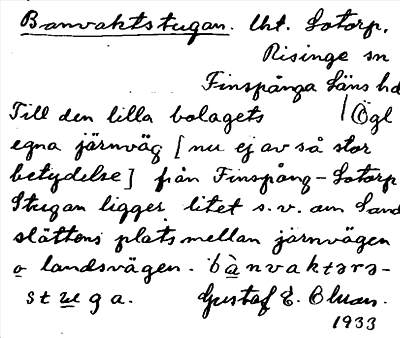 Banvaktstugan. Uht. Lotorp.
Risinge sn
Finspånga Läns hd
Till den lilla bolagets | Ögl
egna järnväg [nu ej av så stor
betydelse] från Finspång - Lotorp
Stugan ligger litet s.v. om Sand
slättens plats mellan järnvägen
o landsvägen. bànvaktərs-
stuga. Gustaf E. Olsson.
1933